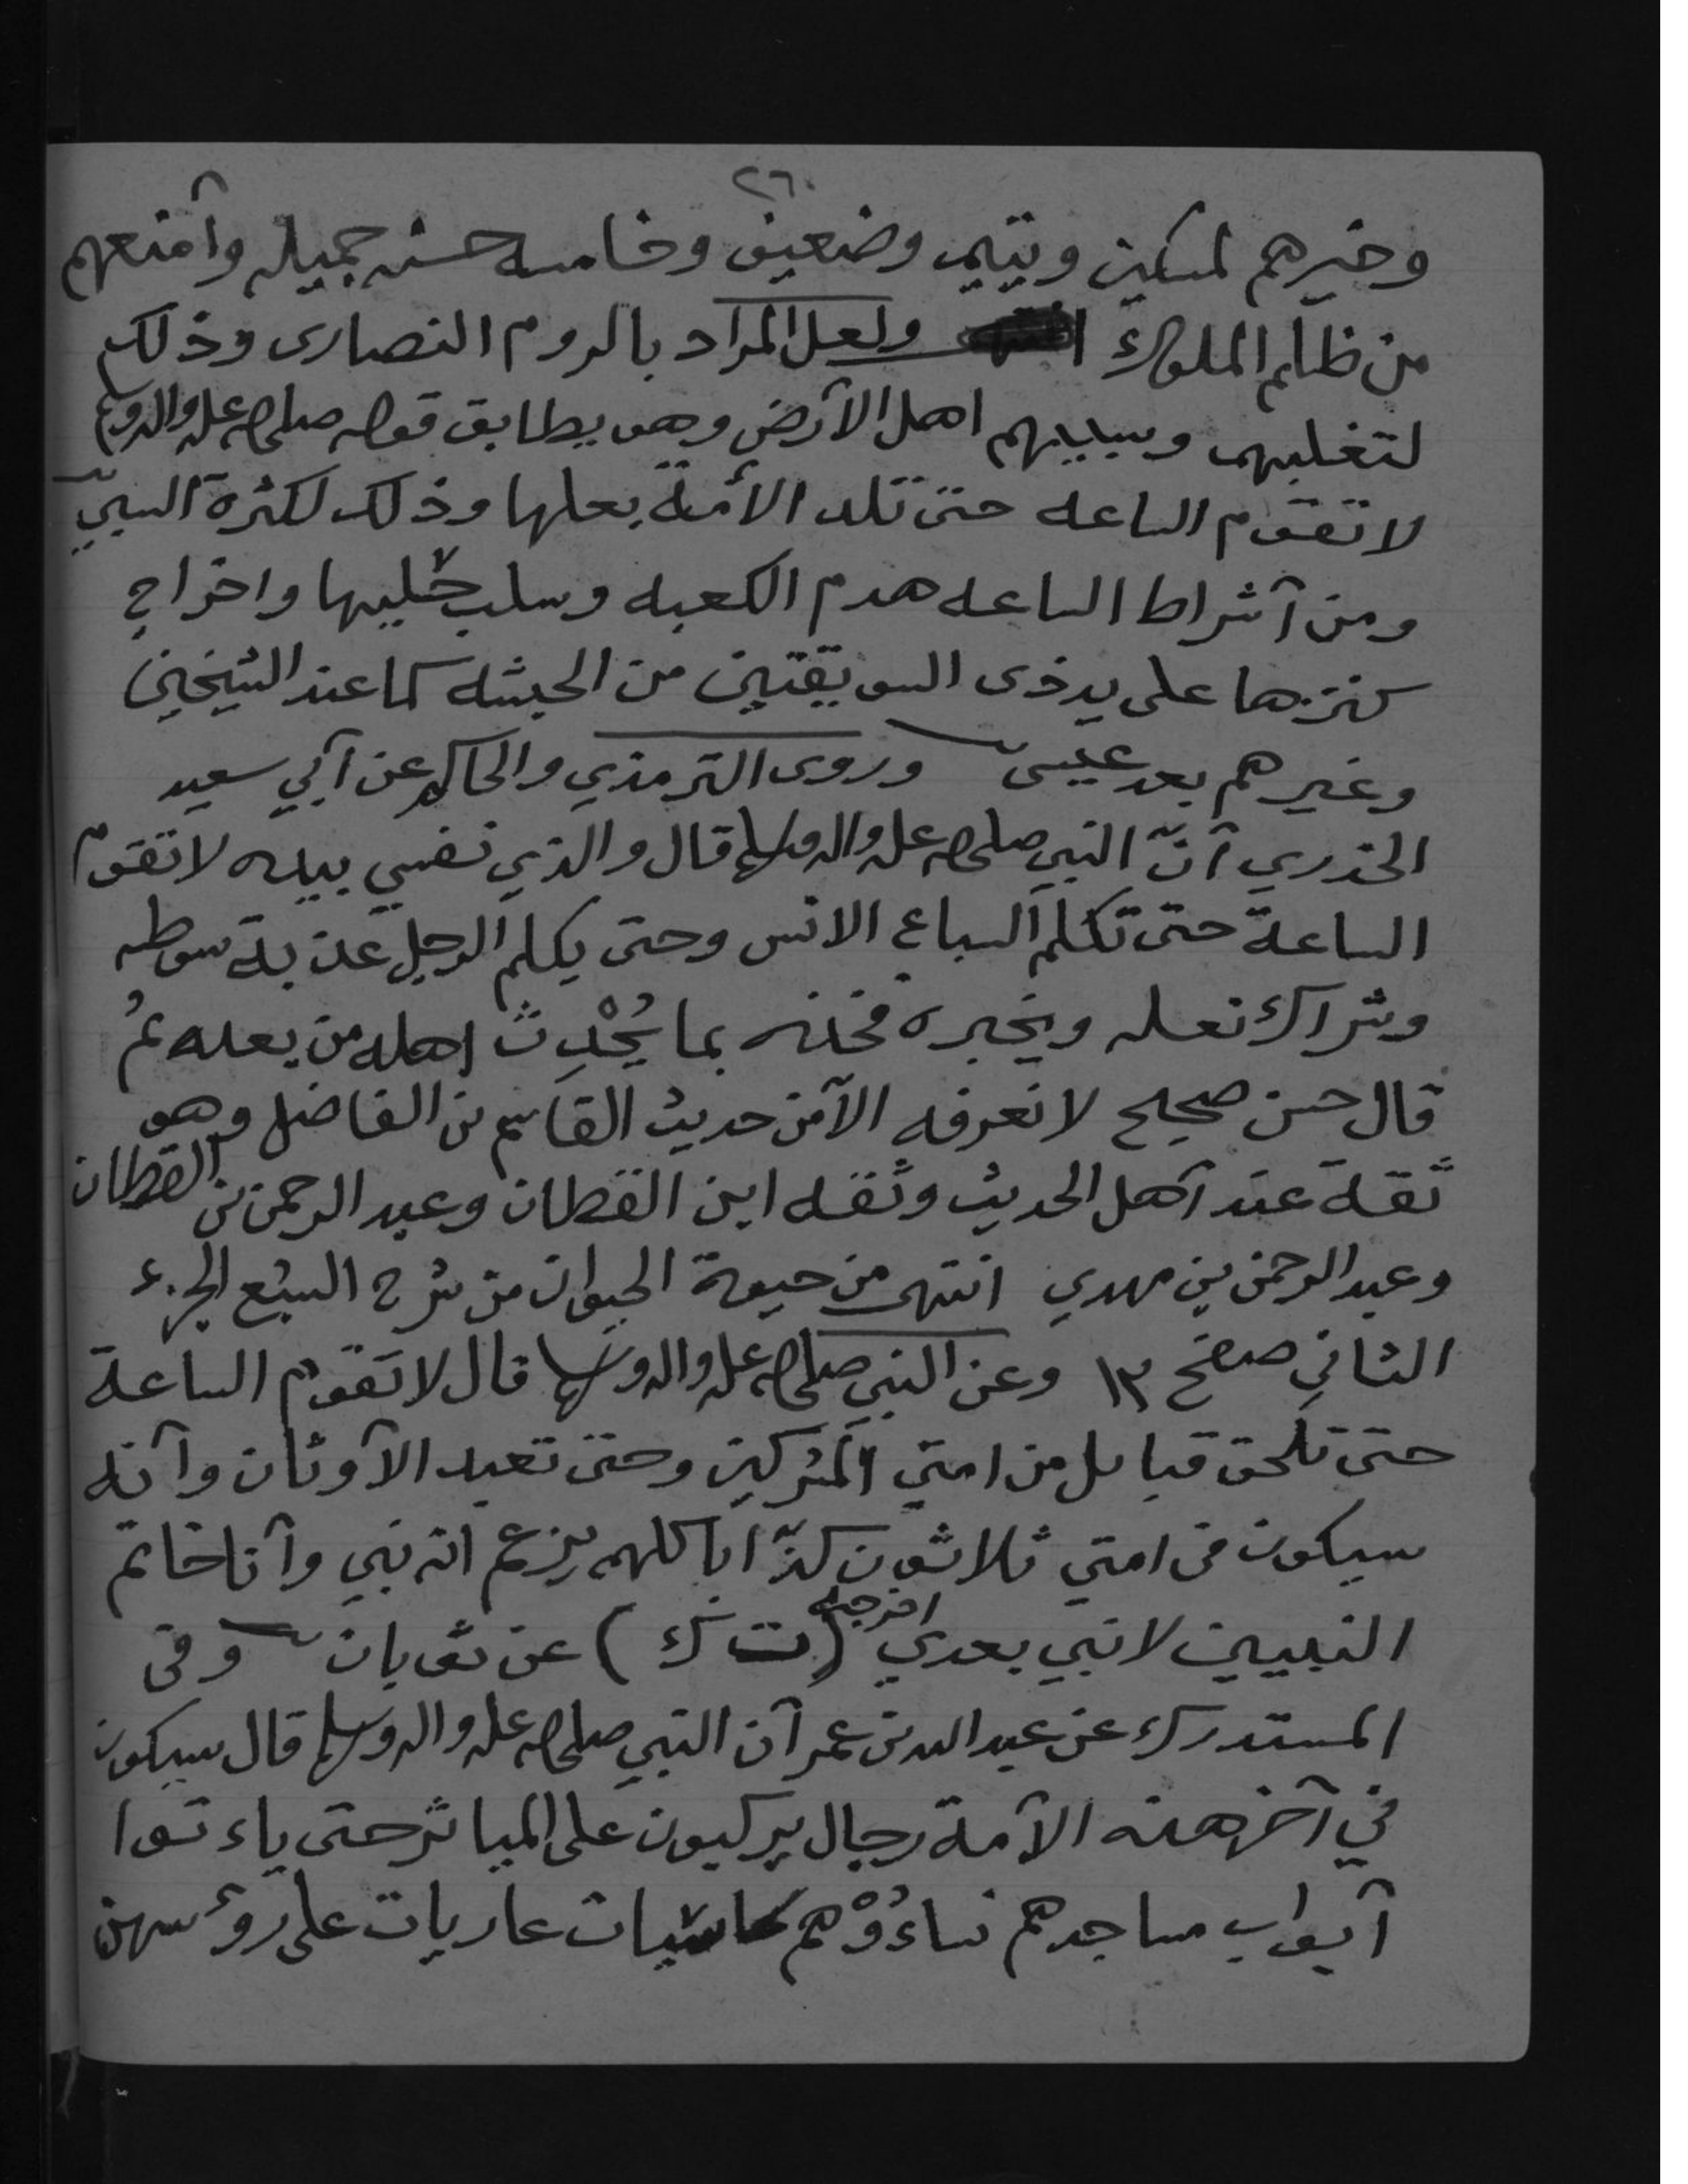 ٢٦
وخيرهم لمسكين ويتيم وضعيف وخامسه حسنه جميله وآمنعهم
من ظلم الملوك انتهى ولعل المراد بالروم النصارى وذلك
لتغلبهم وسبيهم اهل الآرض وهو يطابق قوله صلى الله عليه واله وسلم
لا تقوم الساعه حتى تلد الأمة بعلها وذلك لكثرة السبيّ
ومن آشراط الساعه هدم الكعبه وسلب حليها واخراج
كنزها على يد ذى السويقتين من الحبشه كما عند الشيخين
وغيرهم بعد عيسى وروى الترمذي والحاكم عن آبي سعيد
الخدري آنّ النبي صلى الله عليه واله وسلم قال والذي نفسي بيده لا تقوم
الساعة حتى تكلم السباع الانس وحتى يكلم الرجل عذبة سوطه
وشراك نعله ويخبره فخذه بما يُحْدِث اهله من بعده ثمُ
قال حسن صحيح لا نعرفه الآمن حديث القاسم بن الفاضل وهو
ثقة عند آهل الحديث وثقه ابن القطان وعبد الرحمن بن القطان
وعبد الرحمن بن مهدي انتهى من حيوة الحيوان من شرح السبع الجزء
الثاني صفح ١٣ وعن النبي صلى الله عليه واله وسلم قال لا تقوم الساعة
حتى تلحق قبايل من امتي المشركين وحتى تعبد الآوثان وآنه
سيكون فى امتي ثلاثون كذّابا كلهم يزعم انه نبي وآنا خاتم
النبيين لا نبي بعدي اخرجه (ت ك) عن ثوبان وفى
المستدرك عن عبد الله بن عمر آن النبي صلى الله عليه واله وسلم قال سيكون
في آخر هذه الآمة رجال يركبون على المياثر حتى ياءتوا
آبواب مساجدهم نساءُوْهم كاسيات عاريات على روءسهن